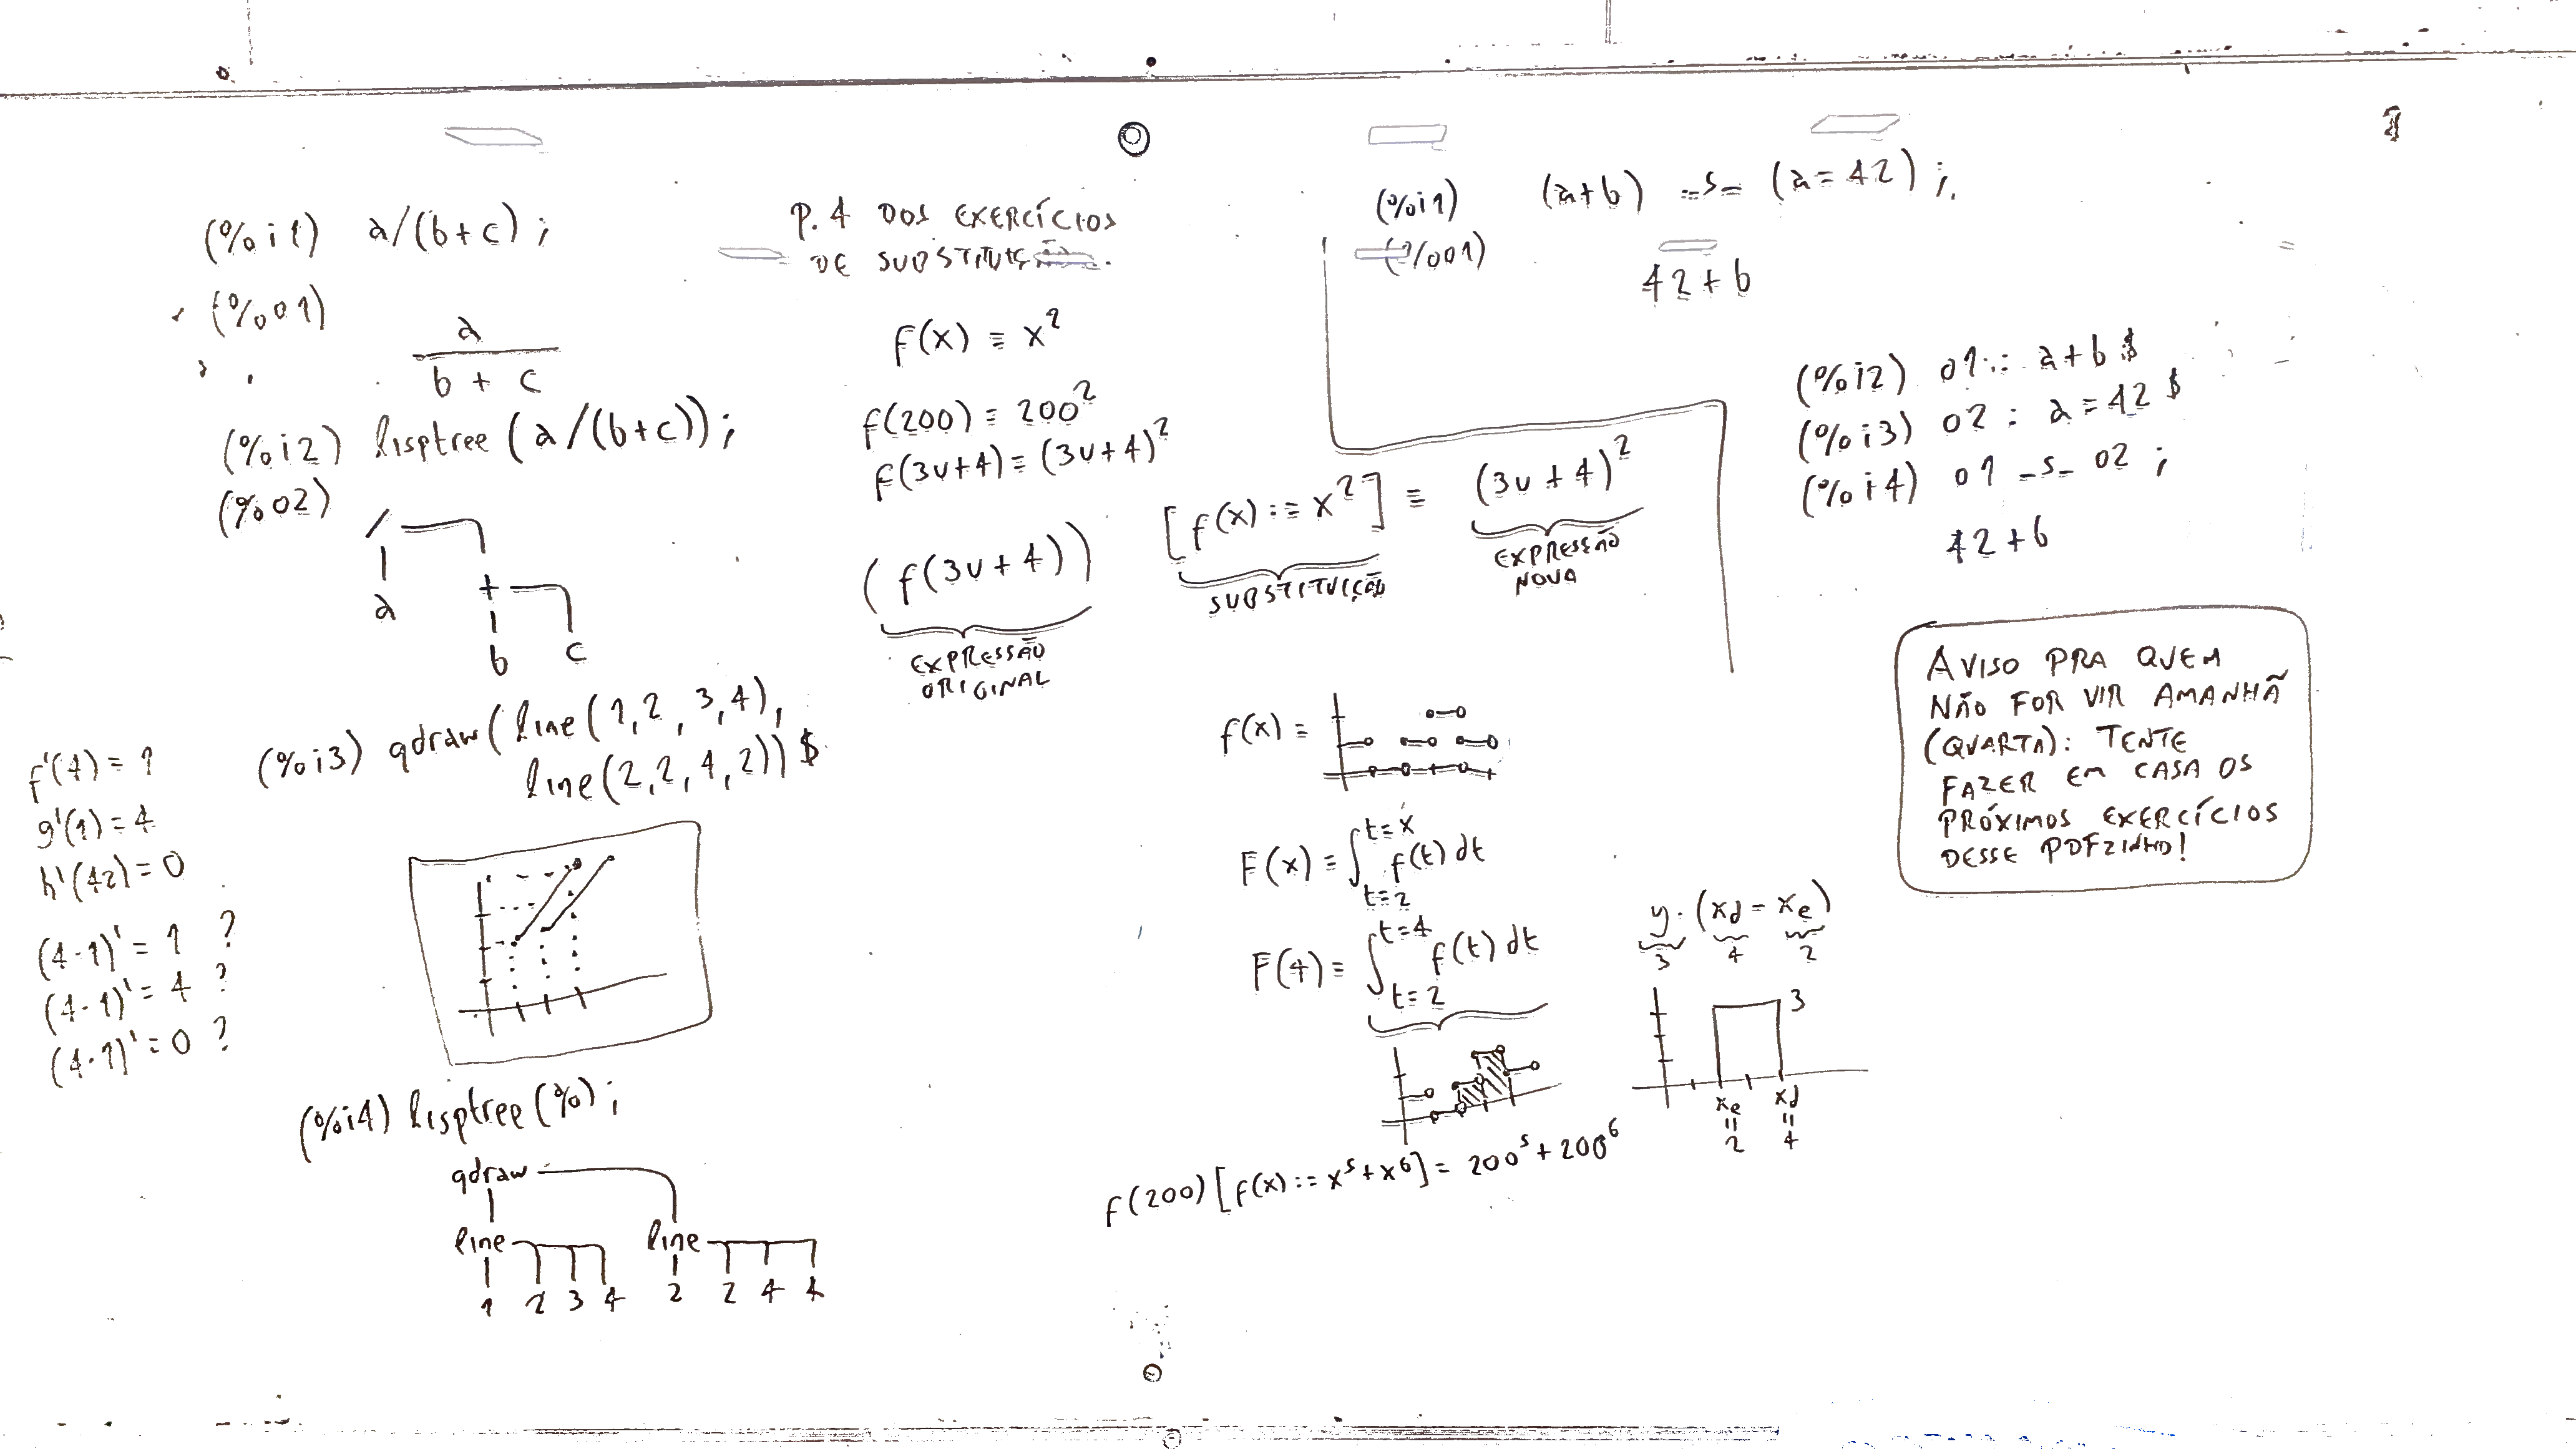 (%i1) a/(b+c);
(%o1)
a
b + c
(%i2) lisptree(a/(b+c));
(%o2)
/
a +
b c
(%i3) qdraw(line(1,2,3,4),
line(2,2,4,2))$
f'(4) = 1
g'(1) = 4
h'(42) = 0
(4·1)' = 1 ?
(4·1)' = 4 ?
(4·1)' = 0 ?
(%i4) lisptree(%);
qdraw
line line
1 2 3 4 2 2 4 4
P.4 DOS EXERCÍCIOS
DE SUBSTITUIÇÃO.
f(x) = x²
f(200) = 200²
f(3u+4) = (3u+4)²
(f(3u+4)) [f(x) := x²] = (3u+4)²
EXPRESSÃO
ORIGINAL
SUBSTITUIÇÃO
EXPRESSÃO
NOVA
f(x) =
F(x) = ∫ t=2 t=x f(t) dt
F(4) = ∫ t=2 t=4 f(t) dt
f(200) [f(x) := x⁵+x⁶] = 200⁵+200⁶
y·(xd − xe)
3 4 2
3
xe xd
= =
2 4
(%i1) (a+b) =s= (a=42);
(%o1)
42+b
(%i2) o1 : a+b $
(%i3) o2 : a=42 $
(%i4) o1 _s_ o2 ;
42+b
AVISO PRA QUEM
NÃO FOR VIR AMANHÃ
(QUARTA): TENTE
FAZER EM CASA OS
PRÓXIMOS EXERCÍCIOS
DESSE PDFZINHO!